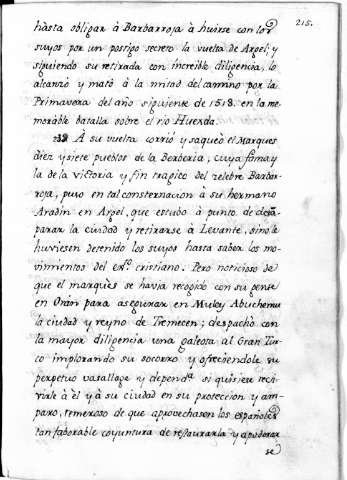 215.
hasta obligar à Barbarroja à huirse con los
suyos por un postigo secreto la vuelta de Argel; y
siguiendo su retirada con increible diligencia, lo
alcanzó y mató à la mitad del camino por la
Primavera del año siguiente de 1518. en la me-
morable batalla sobre el rio Huexda.
A su vuelta corrió y saqueó el Marques
diez y siete pueblos de la Berberia, cuya fama y
la de la victoria y fin tragico del zelebre Barbar-
roja, puso en tal consternacion à su hermano
Aradin en Argel, que estubo à punto de desam-
parar la ciudad y retirarse à Levante, sino le
huviesen detenido los suyos hasta saber los mo-
vimientos del ext.º cristiano. Pero noticioso de
que el marques se havia recogido con su gente
en Orán para asegurar en Muley Abuchemu
la ciudad y reyno de Tremecen; despachò con
la mayor diligencia una galeota al Gran Tur-
co implorando su socorro y ofreciendole su
perpetuo vasallage y depend.ª si quisiere reci-
virle à èl y à su ciudad en su proteccion y am-
paro, temeroso de que aprovechasen los españoles
tan faborable coyuntura de restaurarla y apoderar
se